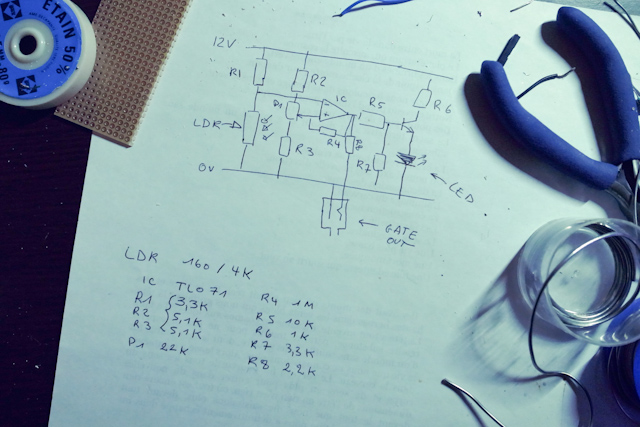 ETAIN 50%
12V
R1
R2
IC
P1
R5
R6
LDR
R4
R8
R3
R7
0V
LED
GATE
OUT
LDR 160 / 4K
IC TL071
R1 3,3K
R2 5,1K
R3 5,1K
P1 22K
R4 1M
R5 10K
R6 1K
R7 3,3K
R8 2,2K